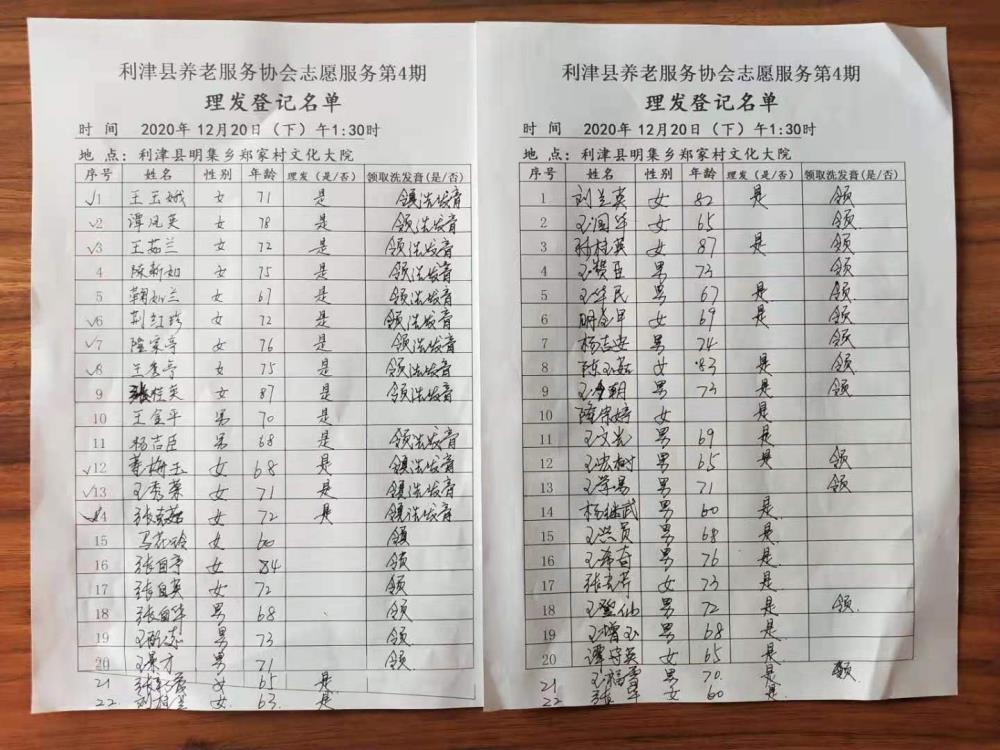 利津县养老服务协会志愿服务第4期
理发登记名单
时 间 2020年 12月20日 (下) 午1:30时
地 点: 利津县明集乡郑家村文化大院
序号 姓名 性别 年龄 理发(是/否) 领取洗发膏(是/否)
√1 王玉娥 女 71 是 领洗发膏
√2 谭凤英 女 78 是 领洗发膏
√3 王茹兰 女 72 是 领洗发膏
4 陈新如 女 75 是 领洗发膏
5 鞠如兰 女 67 是 领洗发膏
√6 荆红珍 女 72 是 领洗发膏
√7 隆家亭 女 76 是 领洗发膏
√8 女 75 是 领洗发膏
9 张桂英 女 87 是 领洗发膏
10 王金平 男 70 是
11 杨吉臣 男 68 是 领洗发膏
√12 董梅玉 女 68 是 领洗发膏
√13 王秀荣 女 71 是 领洗发膏
女 72 是 领洗发膏
15 马花玲 女 60 领
16 张自亭 女 84 领
17 张自英 女 72 领
18 张自华 男 68 领
19 男 73 领
20 男 71 领
21 女 65 是
22. 女 63. 是
利津县养老服务协会志愿服务第4期
理发登记名单
时 间 2020年 12月20日 (下) 午1:30时
地 点: 利津县明集乡郑家村文化大院
序号 姓名 性别 年龄 理发(是/否) 领取洗发膏(是/否)
1 刘兰英 女 82 是 领
2 王国华 女 65 领
3 孙桂英 女 87 是 领
4 王赞臣 男 73 领
5 王华民 男 67 是 领
6 女 69 是 领
7 杨志安 男 74 领
8 陈玉茹 女 83 是 领
9 男 73 是 领
10 女 是
11 王文光 男 69 是
12 王宏树 男 65 是 领
13 男 71 领
14 杨继武 男 60 是
15 王洪员 男 68 是
16 王希奇 男 76 是
17 张秀芹 女 73 是
18 王登仙 男 72 是 领
19 王增玉 男 68 是
20 谭守英 女 65 是
21 男 70. 是 领
22 女 60 是